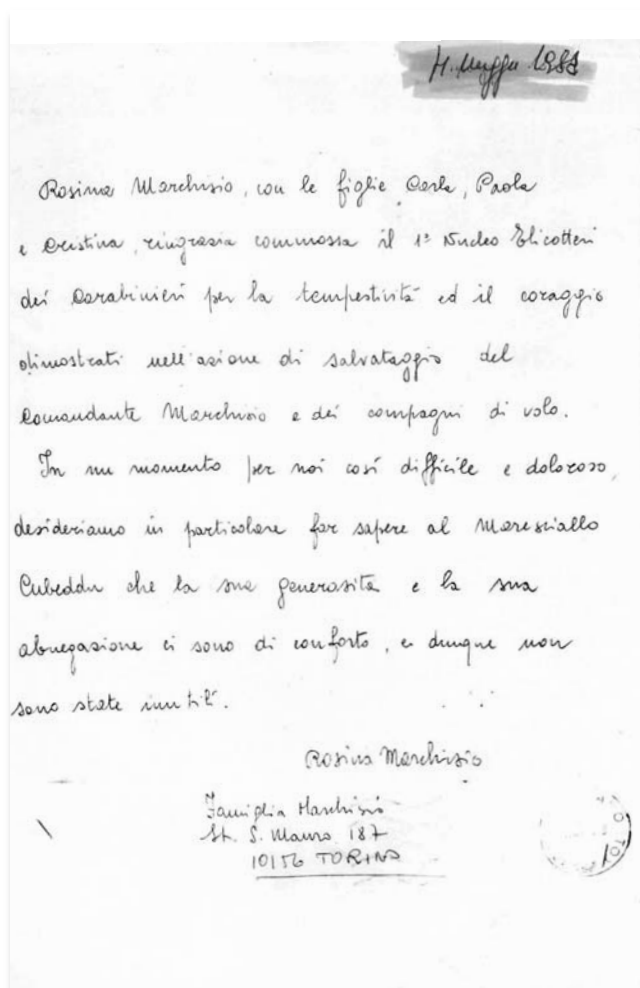 1983
Rosina Marchisio, con le figlie Carla, Paola
e Cristina, ringrazia commossa il 1° Nucleo Elicotteri
dei Carabinieri per la tempestività ed il coraggio
dimostrati nell'azione di salvataggio del
Comandante Marchisio e dei compagni di volo.
In un momento per noi così difficile e doloroso,
desideriamo in particolare far sapere al Maresciallo
Cubeddu che la sua generosità e la sua
abnegazione ci sono di conforto, e dunque non
sono state inutili.
Rosina Marchisio
Famiglia Marchisio
St. S. Mauro 187
10156 TORINO